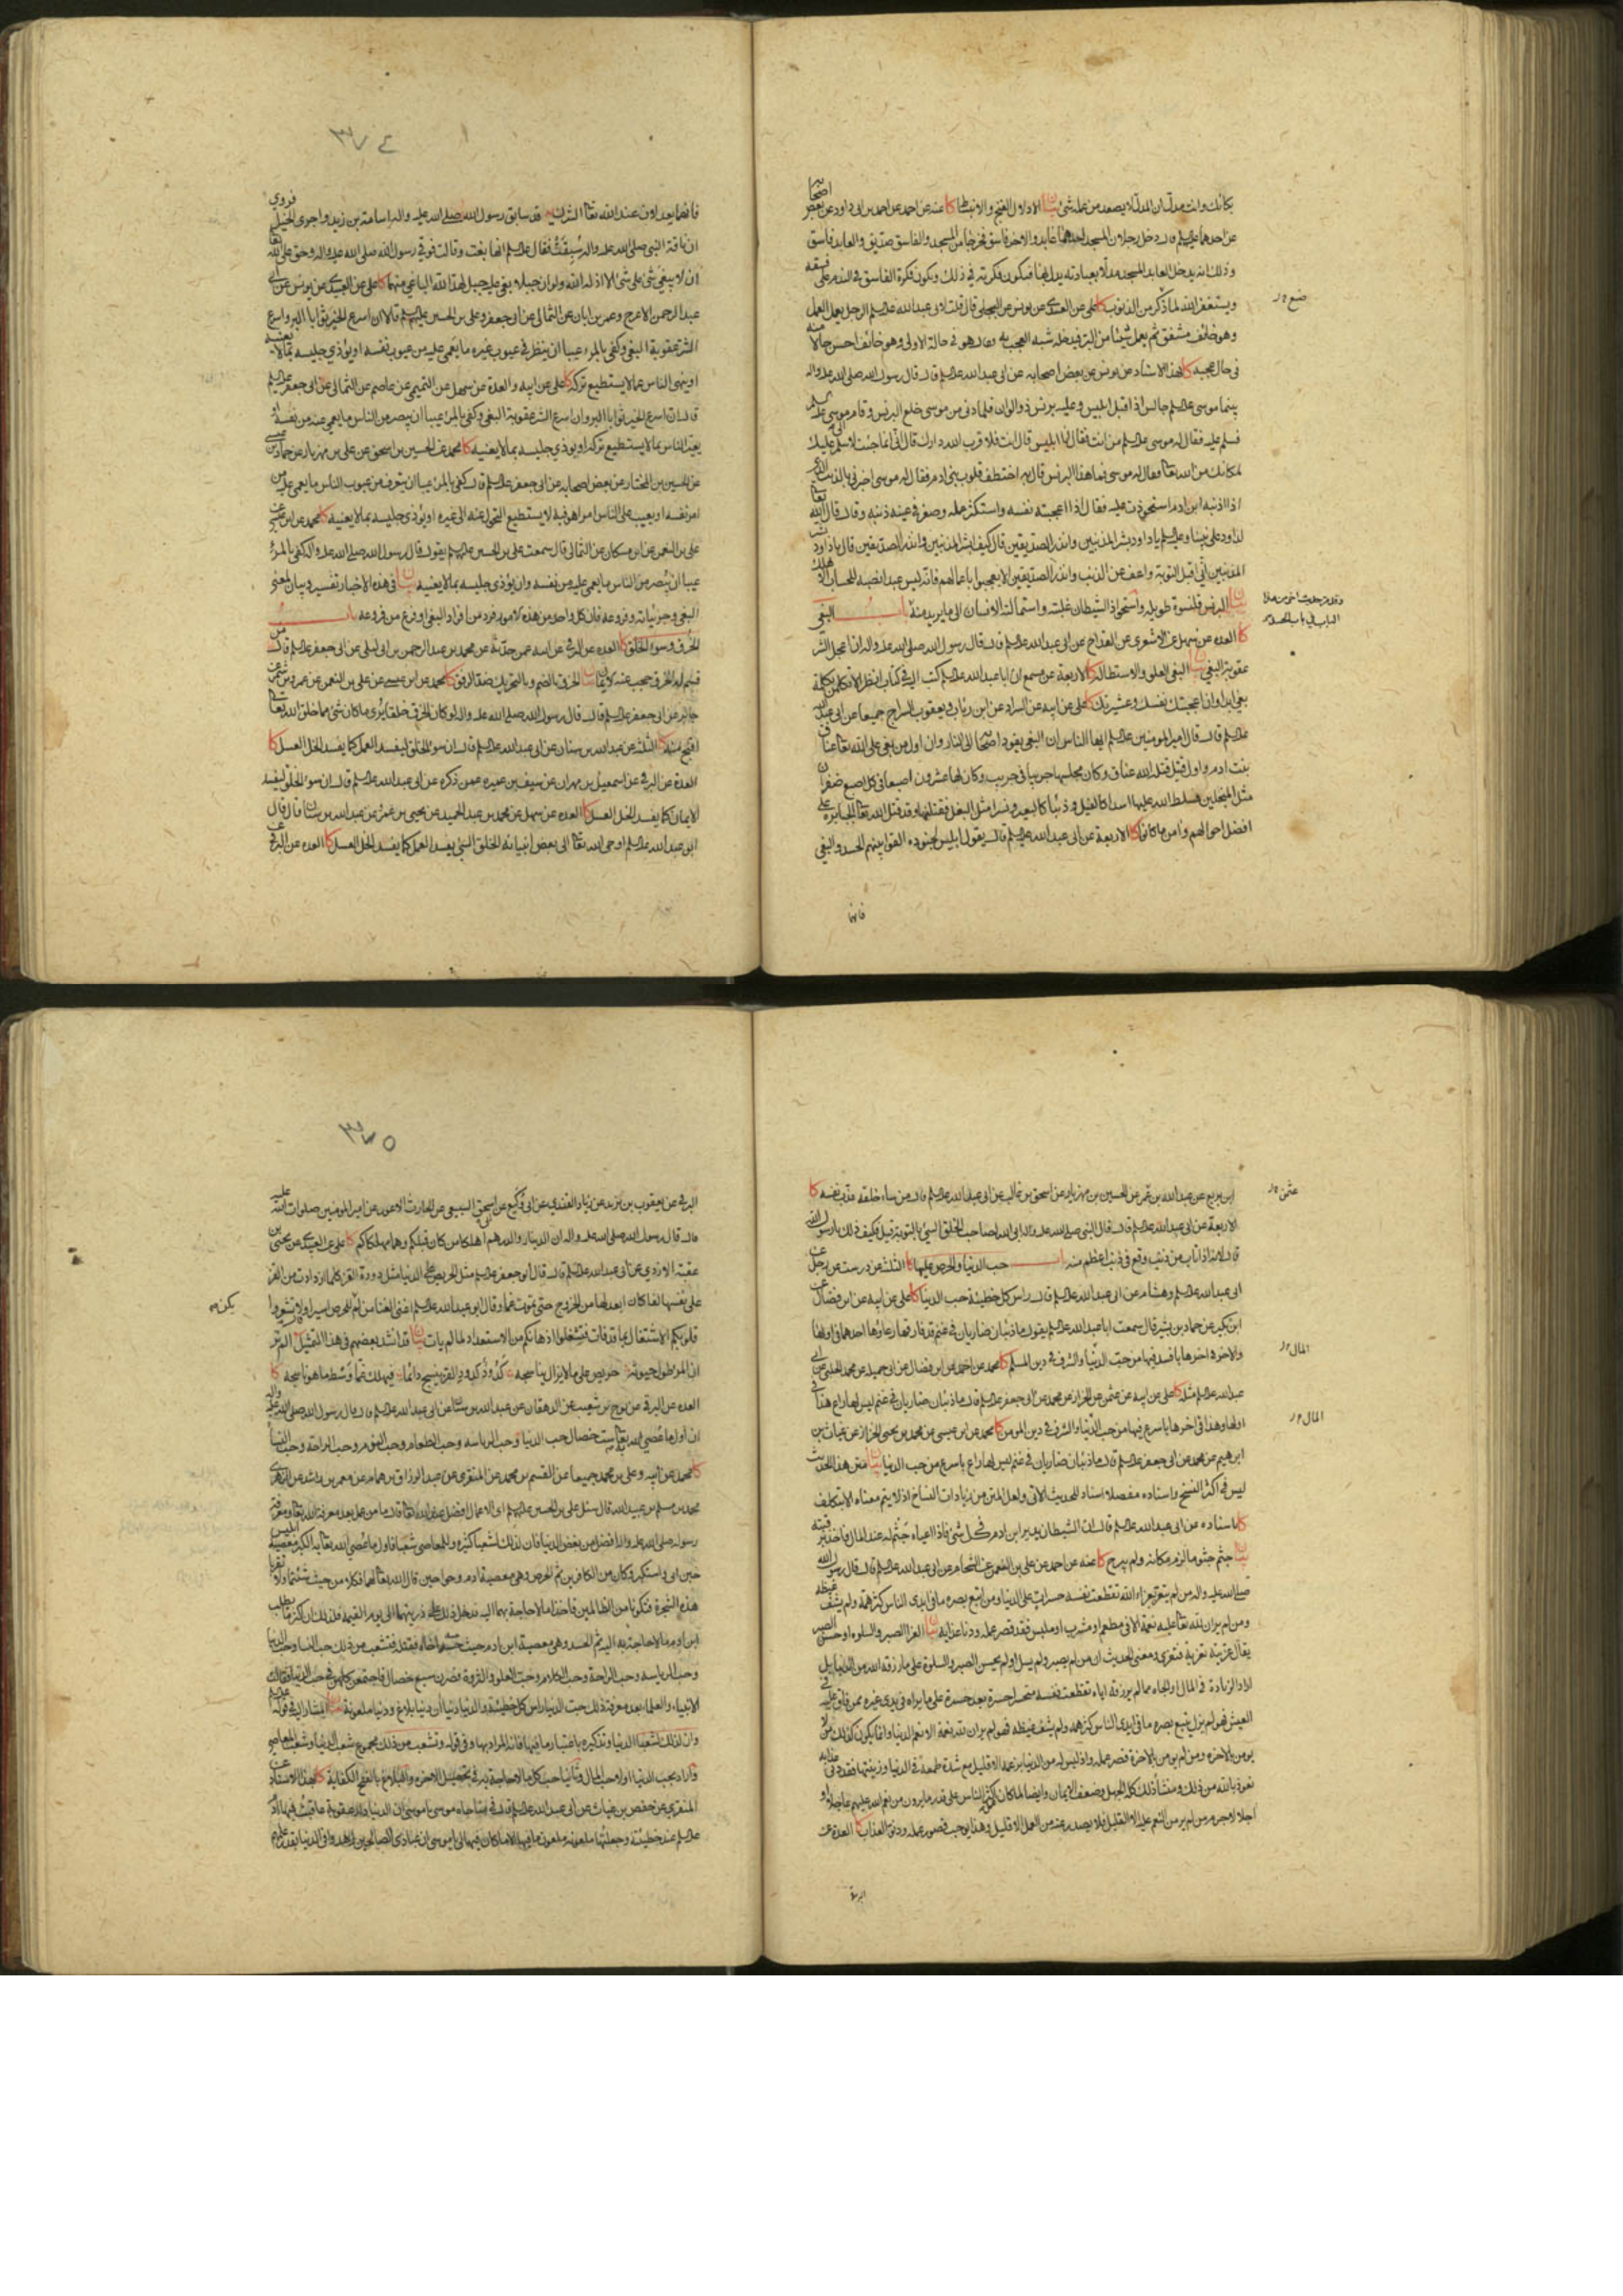 بكائك وانت مدل ان المدل لا يصعد من عمله شئ بيان الادلال الغنج والانبساط كا عنه عن احمد عن احمد بن ابى داود عن بعض اصحابه
عن احدهما عليهم قال دخل رجلان المسجد احدهما عابد والاخر فاسق فخرجا من المسجد والفاسق صديق والعابد فاسق
وذلك انه يدخل العابد المسجد مدلا بعبادته يدل بها فيكون فكرته في ذلك ويكون فكرة الفاسق في الندم على فسقه
ويستغفر الله لما ذكر من الذنوب كا على عن العبيدى عن يونس عن البجلى قال قلت لابى عبد الله عليهم الرجل يعمل العمل
وهو خائف مشفق ثم يعمل شيئا من البر فيدخله شبه العجب به فقال هو في حالة الاولى وهو خائف احسن حالا منه
في حال عجبه كا بهذا الاسناد عن يونس عن بعض اصحابه عن ابى عبد الله عليهم قال قال رسول الله صلى الله عليه واله
بينما موسى عليهم جالس اذ اقبل ابليس وعليه برنس ذو الوان فلما دنى من موسى خلع البرنس وقام الى موسى
فسلم عليه فقال له موسى عليهم من انت فقال انا ابليس قال انت فلا قرب الله دارك قال انى انما جئت لاسلم عليك
لمكانك من الله تعا فقال له موسى فما هذا البرنس قال به اختطف قلوب بنى ادم فقال له موسى اخبرنى بالذنب الذى
اذا اذنبه ابن ادم استحوذت عليه فقال اذا اعجبته نفسه واستكثر عمله وصغر في عينه ذنبه وقال قال الله تعا
لداود على نبينا وعليهم يا داود بشر المذنبين وانذر الصديقين قال كيف ابشر المذنبين وانذر الصديقين قال يا داود بشر
المذنبين انى اقبل التوبة واعف عن الذنب وانذر الصديقين الا يعجبوا باعمالهم فانه ليس عبد انصبه للحساب الا هلك
بيان البرنس قلنسوة طويلة واستحواذ الشيطان غلبته واستمالته الانسان الى ما يريد منه باب البغى
كا العدة عن سهل عن الاشعرى عن القداح عن ابى عبد الله عليهم قال قال رسول الله صلى الله عليه واله ان اعجل الشر
عقوبة البغى بيان البغى العلو والاستطالة كا الاربعة عن مسمع ان ابا عبد الله عليهم كتب اليه في كتاب انظر الا تكلمن بكلمة
بغى ابدا وان اعجبتك نفسك وعشيرتك كا على عن ابيه عن السراد عن ابن رئاب ويعقوب السراج جميعا عن ابى عبد الله
عليهم قال قال امير المومنين عليهم ايها الناس ان البغى يقود اصحابه الى النار وان اول من بغى على الله تعا عناق
بنت ادم واول قتيل قتله الله عناق وكان مجلسها جريبا في جريب وكان لها عشرون اصبعا في كل اصبع ظفران
مثل المنجلين فسلط الله عليها اسدا كالفيل وذئبا كالبعير ونسرا مثل البغل فقتلنها وقد قتل الله تعا الجبابرة على
افضل احوالهم وامن ما كانوا كا الاربعة عن ابى عبد الله عليهم قال يقول ابليس لجنوده القوا بينهم الحسد والبغى
فانهما
٣٧٤
فانهما يعدلان عند الله تعا الشرك يه قد سابق رسول الله صلى الله عليه واله اسامة بن زيد واجرى الخيل فروى
ان ناقة النبى صلى الله عليه واله سبقت فقال عليهم انها بغت وقالت فوقى رسول الله صلى الله عليه واله وحق على الله تعا
ان لا يبغى شئ على شئ الا اذله الله ولو ان جبلا بغى على جبل لهد الله الباغى منهما كا على عن العبيدى عن يونس عن
عبد الرحمن الاعرج وعمر بن ابان عن الثمالى عن ابى جعفر وعلى بن الحسين عليهم قالا ان اسرع الخير ثوابا البر واسرع
الشر عقوبة البغى وكفى بالمرء عيبا ان ينظر في عيوب غيره ما يعمى عليه من عيوب نفسه او يؤذى جليسه بما لا يعنيه
او ينهى الناس عما لا يستطيع تركه كا على عن ابيه والعدة عن سهل عن التميمى عن عاصم عن الثمالى عن ابى جعفر عليهم
قال ان اسرع الخير ثوابا البر وان اسرع الشر عقوبة البغى وكفى بالمرء عيبا ان يبصر من الناس ما يعمى عنه من نفسه او
يعير الناس بما لا يستطيع تركه او يوذى جليسه بما لا يعنيه كا محمد عن الحسين بن اسحق عن على بن مهزيار عن حماد بن عيسى
عن الحسين بن المختار عن بعض اصحابه عن ابى جعفر عليهم قال كفى بالمرء عيبا ان يتعرف من عيوب الناس ما يعمى عليه من
امر نفسه او يعيب على الناس امرا هو فيه لا يستطيع التحول عنه الى غيره او يؤذى جليسه بما لا يعنيه كا محمد عن ابن عيسى عن
على بن النعمن عن ابن مسكان عن الثمالى قال سمعت على بن الحسين عليهم يقول قال رسول الله صلى الله عليه واله كفى بالمرء
عيبا ان يبصر من الناس ما يعمى عليه من نفسه وان يؤذى جليسه بما لا يعنيه بيان في هذه الاخبار تفسير وبيان لمعنى
البغى وجزئياته وفروعه فان كل واحد من هذه الامور فرد من افراد البغى او فرع من فروعه باب
الخرق وسوء الخلق كا العدة عن البرقى عن ابيه عمن حدثه عن محمد بن عبد الرحمن بن ابى ليلى عن ابى جعفر عليهم قال من
قسم له الخرق حجب عنه الايمان بيان الخرق بالضم وبالتحريك ضد الرفق كا محمد عن ابن عيسى عن على بن النعمن عن عمرو بن شمر عن
جابر عن ابى جعفر عليهم قال قال رسول الله صلى الله عليه واله لو كان الخرق خلقا يرى ما كان شئ مما خلق الله تعا
اقبح منه كا الثلثة عن عبد الله بن سنان عن ابى عبد الله عليهم قال ان سوء الخلق ليفسد العمل كما يفسد الخل العسل كا
العدة عن البرقى عن اسمعيل بن مهران عن سيف بن عميرة عمن ذكره عن ابى عبد الله عليهم قال ان سوء الخلق ليفسد
الايمان كما يفسد الخل العسل كا العدة عن سهل عن محمد بن عبد الحميد عن يحيى بن عمرو عن عبد الله بن سنان قال قال
ابو عبد الله عليهم اوحى الله تعا الى بعض انبيائه الخلق السيئ يفسد العمل كما يفسد الخل العسل كا العدة عن البرقى عن
ابن بزيع عن عبد الله بن عثمن عن الحسين بن مهزيار عن اسحق بن غالب عن ابى عبد الله عليهم قال من ساء خلقه عذب نفسه كا
الاربعة عن ابى عبد الله عليهم قال قال النبى صلى الله عليه واله ابى الله لصاحب الخلق السيئ بالتوبة قيل فكيف ذلك يا رسول الله
قال لانه اذا تاب من ذنب وقع في ذنب اعظم منه باب حب الدنيا والحرص عليها كا الثلثة عن درست عن رجل عن
ابى عبد الله عليهم وهشام عن ابى عبد الله عليهم قال راس كل خطيئة حب الدنيا كا على عن ابيه عن ابن فضال عن
ابن بكير عن حماد بن بشير قال سمعت ابا عبد الله عليهم يقول ما ذئبان ضاريان في غنم قد فارقها رعاؤها احدهما في اولها
والاخر في اخرها بافسد فيها من حب الدنيا والشرف في دين المسلم كا محمد عن احمد عن ابن فضال عن ابى جميلة عن محمد الحلبى عن ابى
عبد الله عليهم مثله كا على عن ابيه عن عثمن عن الخزاز عن محمد عن ابى جعفر عليهم قال ما ذئبان ضاريان في غنم ليس لها راع هذا في
اولها وهذا في اخرها باسرع فيها من حب الدنيا والشرف في دين المومن كا محمد عن ابن عيسى عن محمد بن يحيى الخزاز عن غياث بن
ابرهيم عن محمد عن ابى جعفر عليهم قال ما ذئبان ضاريان في غنم ليس لها راع باسرع من حب الدنيا بيان متن هذا الحديث
ليس في اكثر النسخ واسناده مفصلا اسناد للحديث الاتى ولعل المتن من زيادات النساخ اذ لا يتم معناه الا بتكلف
كا باسناده عن ابى عبد الله عليهم قال ان الشيطان يدير ابن ادم في كل شئ فاذا اعياه جثم له عند المال فاخذ برقبته
بيان جثم جثوما لزم مكانه ولم يبرح كا عنه عن احمد عن على بن النعمن عن الشحام عن ابى عبد الله عليهم قال قال رسول الله
صلى الله عليه واله من لم يتعز بعزاء الله تقطعت نفسه حسرات على الدنيا ومن اتبع بصره ما في ايدى الناس كثر همه ولم يشف غيظه
ومن لم ير ان لله تعا عليه نعمة الا في مطعم او مشرب او ملبس فقد قصر عمله ودنا عذابه بيان العزا الصبر والسلوة او حسن الصبر
يقال عزيته تعزية فتعزى ومعنى الحديث ان من لم يصبر ولم يسل او لم يحسن الصبر والسلوة على ما رزقه الله من الدنيا بل
اراد الزيادة في المال او الجاه مما لم يرزقه اياه تقطعت نفسه متحسرا حسرة بعد حسرة على ما يراه في يدى غيره ممن فاق عليه في
العيش فهو لم يزل يتبع بصره ما في ايدى الناس كثر همه ولم يشف غيظه فهو لم ير ان لله نعمة الا نعم الدنيا وانما يكون كذلك من لا
يومن بالاخرة ومن لم يومن بالاخرة قصر عمله واذ ليس له من الدنيا بزعمه الا قليل مع شدة طمعه في الدنيا وزينتها فقد دنا عذابه
نعوذ بالله من ذلك ومنشأ ذلك كله الجهل وضعف الايمان وايضا لما كان عمل اكثر الناس على قدر ما يرون من نعم الله عليهم عاجلا او
اجلا لا جرم من لم ير من النعم عليه الا القليل فلا يصدر عنه من العمل الا قليل وهذا يوجب قصور عمله ودنو العذاب كا العدة عن
البرقى
٣٧٥
البرقى عن يعقوب بن يزيد عن زياد القندى عن ابى وكيع عن ابى اسحق السبيعى عن الحارث الاعور عن امير المومنين صلوات الله عليه
قال قال رسول الله صلى الله عليه واله ان الدينار والدرهم اهلكا من كان قبلكم وهما مهلكاكم كا على عن العبيدى عن يحيى بن
عقبة الازدى عن ابى عبد الله عليهم قال قال ابو جعفر عليهم مثل الحريص على الدنيا مثل دودة القز كلما ازدادت من القز
على نفسها لفا كان ابعد لها من الخروج حتى تموت غما وقال ابو عبد الله عليهم اغنى الغنا من لم يكن للحرص اسيرا وقال لا تشعروا
قلوبكم الاشتغال بما قد فات فتشغلوا اذهانكم من الاستعداد لما لم يات بيان قد انشد بعضهم في هذا التمثيل الم تر
ان المرء طول حيوته حريص على ما لا يزال يناسجه كدود كدود القز ينسج دائما فيهلك غما وسط ما هو ناسجه كا
العدة عن البرقى عن نوح بن شعيب عن الدهقان عن عبد الله بن سنان عن ابى عبد الله عليهم قال قال رسول الله صلى الله عليه واله
ان اول ما عصى الله تعا به ست خصال حب الدنيا وحب الرياسة وحب الطعام وحب النوم وحب الراحة وحب النساء
كا محمد عن ابيه وعلى بن محمد جميعا عن القسم بن محمد عن المنقرى عن عبد الرزاق بن همام عن معمر بن راشد عن الزهرى
محمد بن مسلم بن عبيد الله قال سئل على بن الحسين عليهم اى الاعمال افضل عند الله تعا قال ما من عمل بعد معرفة الله تعا ومعرفة
رسوله صلى الله عليه واله افضل من بغض الدنيا فان لذلك لشعبا كثيرة وللمعاصى شعبا فاول ما عصى الله تعا به الكبر معصية ابليس
حين ابى واستكبر وكان من الكافرين ثم الحرص وهى معصية ادم وحوا حين قال الله تعا لهما فكلا من حيث شئتما ولا تقربا
هذه الشجرة فتكونا من الظالمين فاخذا ما لا حاجة بهما اليه فدخل ذلك على ذريتهما الى يوم القيمة فلذلك ان اكثر ما يطلب
ابن ادم ما لا حاجة به اليه ثم الحسد وهى معصية ابن ادم حيث حسد اخاه فقتله فتشعب من ذلك حب النسا وحب الدنيا
وحب الرياسة وحب الراحة وحب الكلام وحب العلو والثروة فصرن سبع خصال فاجتمعن كلهن في حب الدنيا فقالت
الانبياء والعلماء بعد معرفة ذلك حب الدنيا راس كل خطيئة والدنيا دنيا ان دنيا بلاغ ودنيا ملعونة بيان المشار اليه في قوله عليهم
وان لذلك لشعبا الدنيا وتذكيره باعتبار ما فيها فانه المراد بها وفي قوله وتشعب من ذلك مجموع شعب الدنيا وشعب المعاصى
واراد بحب الدنيا اولا حب المال وثانيا حب كل ما لا حاجة به في تحصيل الاخرة والبلاغ بالفتح الكفاية كا بهذا الاسناد عن
المنقرى عن حفص بن غياث عن ابى عبد الله عليهم قال في مناجاة موسى يا موسى ان الدنيا دار عقوبة عاقبت فيها ادم
عليهم عند خطيئته وجعلتها ملعونة ملعون ما فيها الا ما كان فيها لى يا موسى ان عبادى الصالحين زهدوا في الدنيا بقدر علمهم